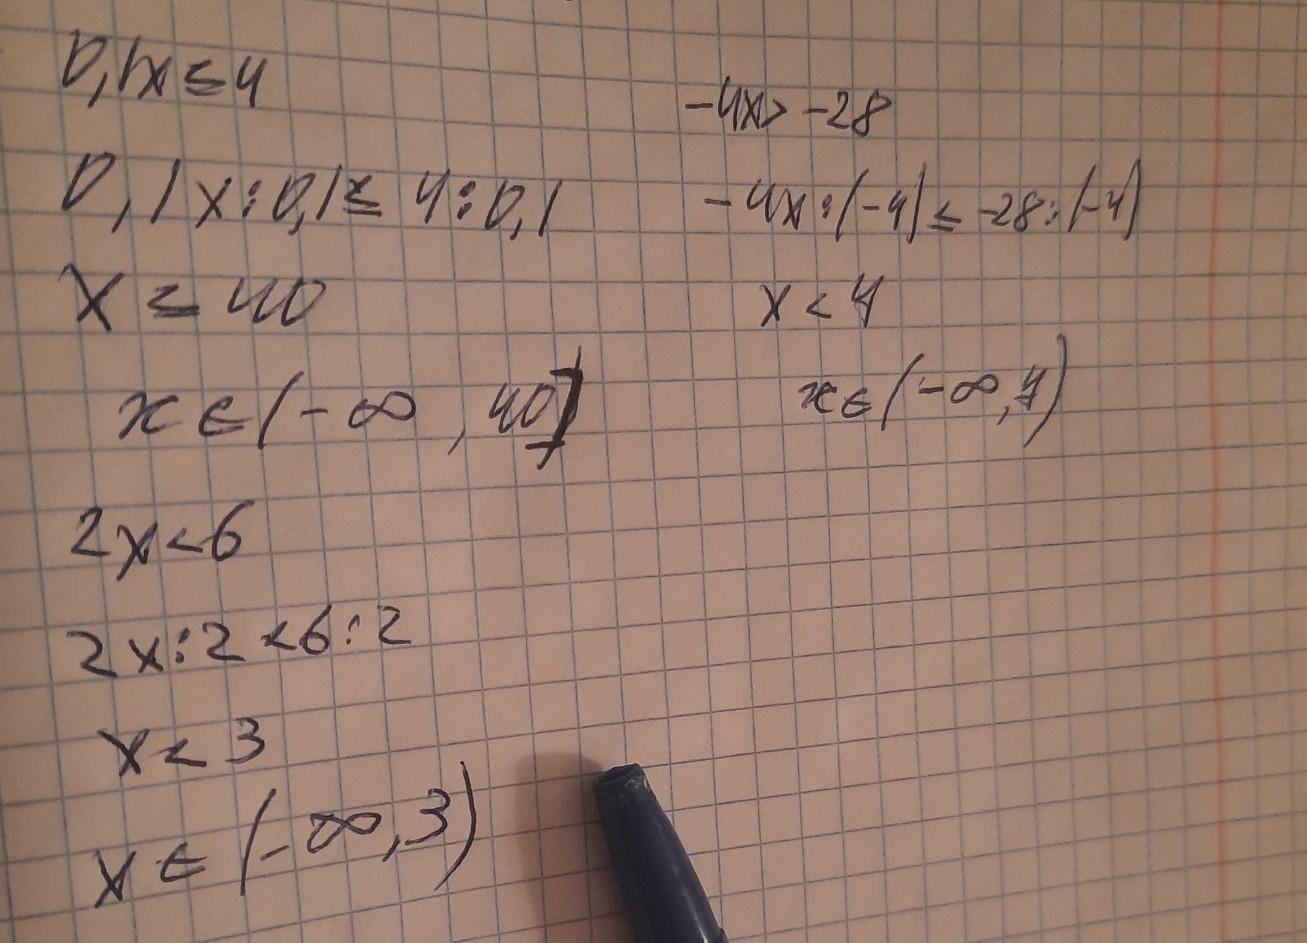 0,1x ≤ 4
0,1x:0,1 ≤ 4:0,1
x ≤ 40
x ∈ (-∞, 40]
2x < 6
2x:2 < 6:2
x < 3
x ∈ (-∞, 3)
-4x > -28
-4x:(-4) ≤ -28:(-4)
x < 4
x ∈ (-∞, 4)